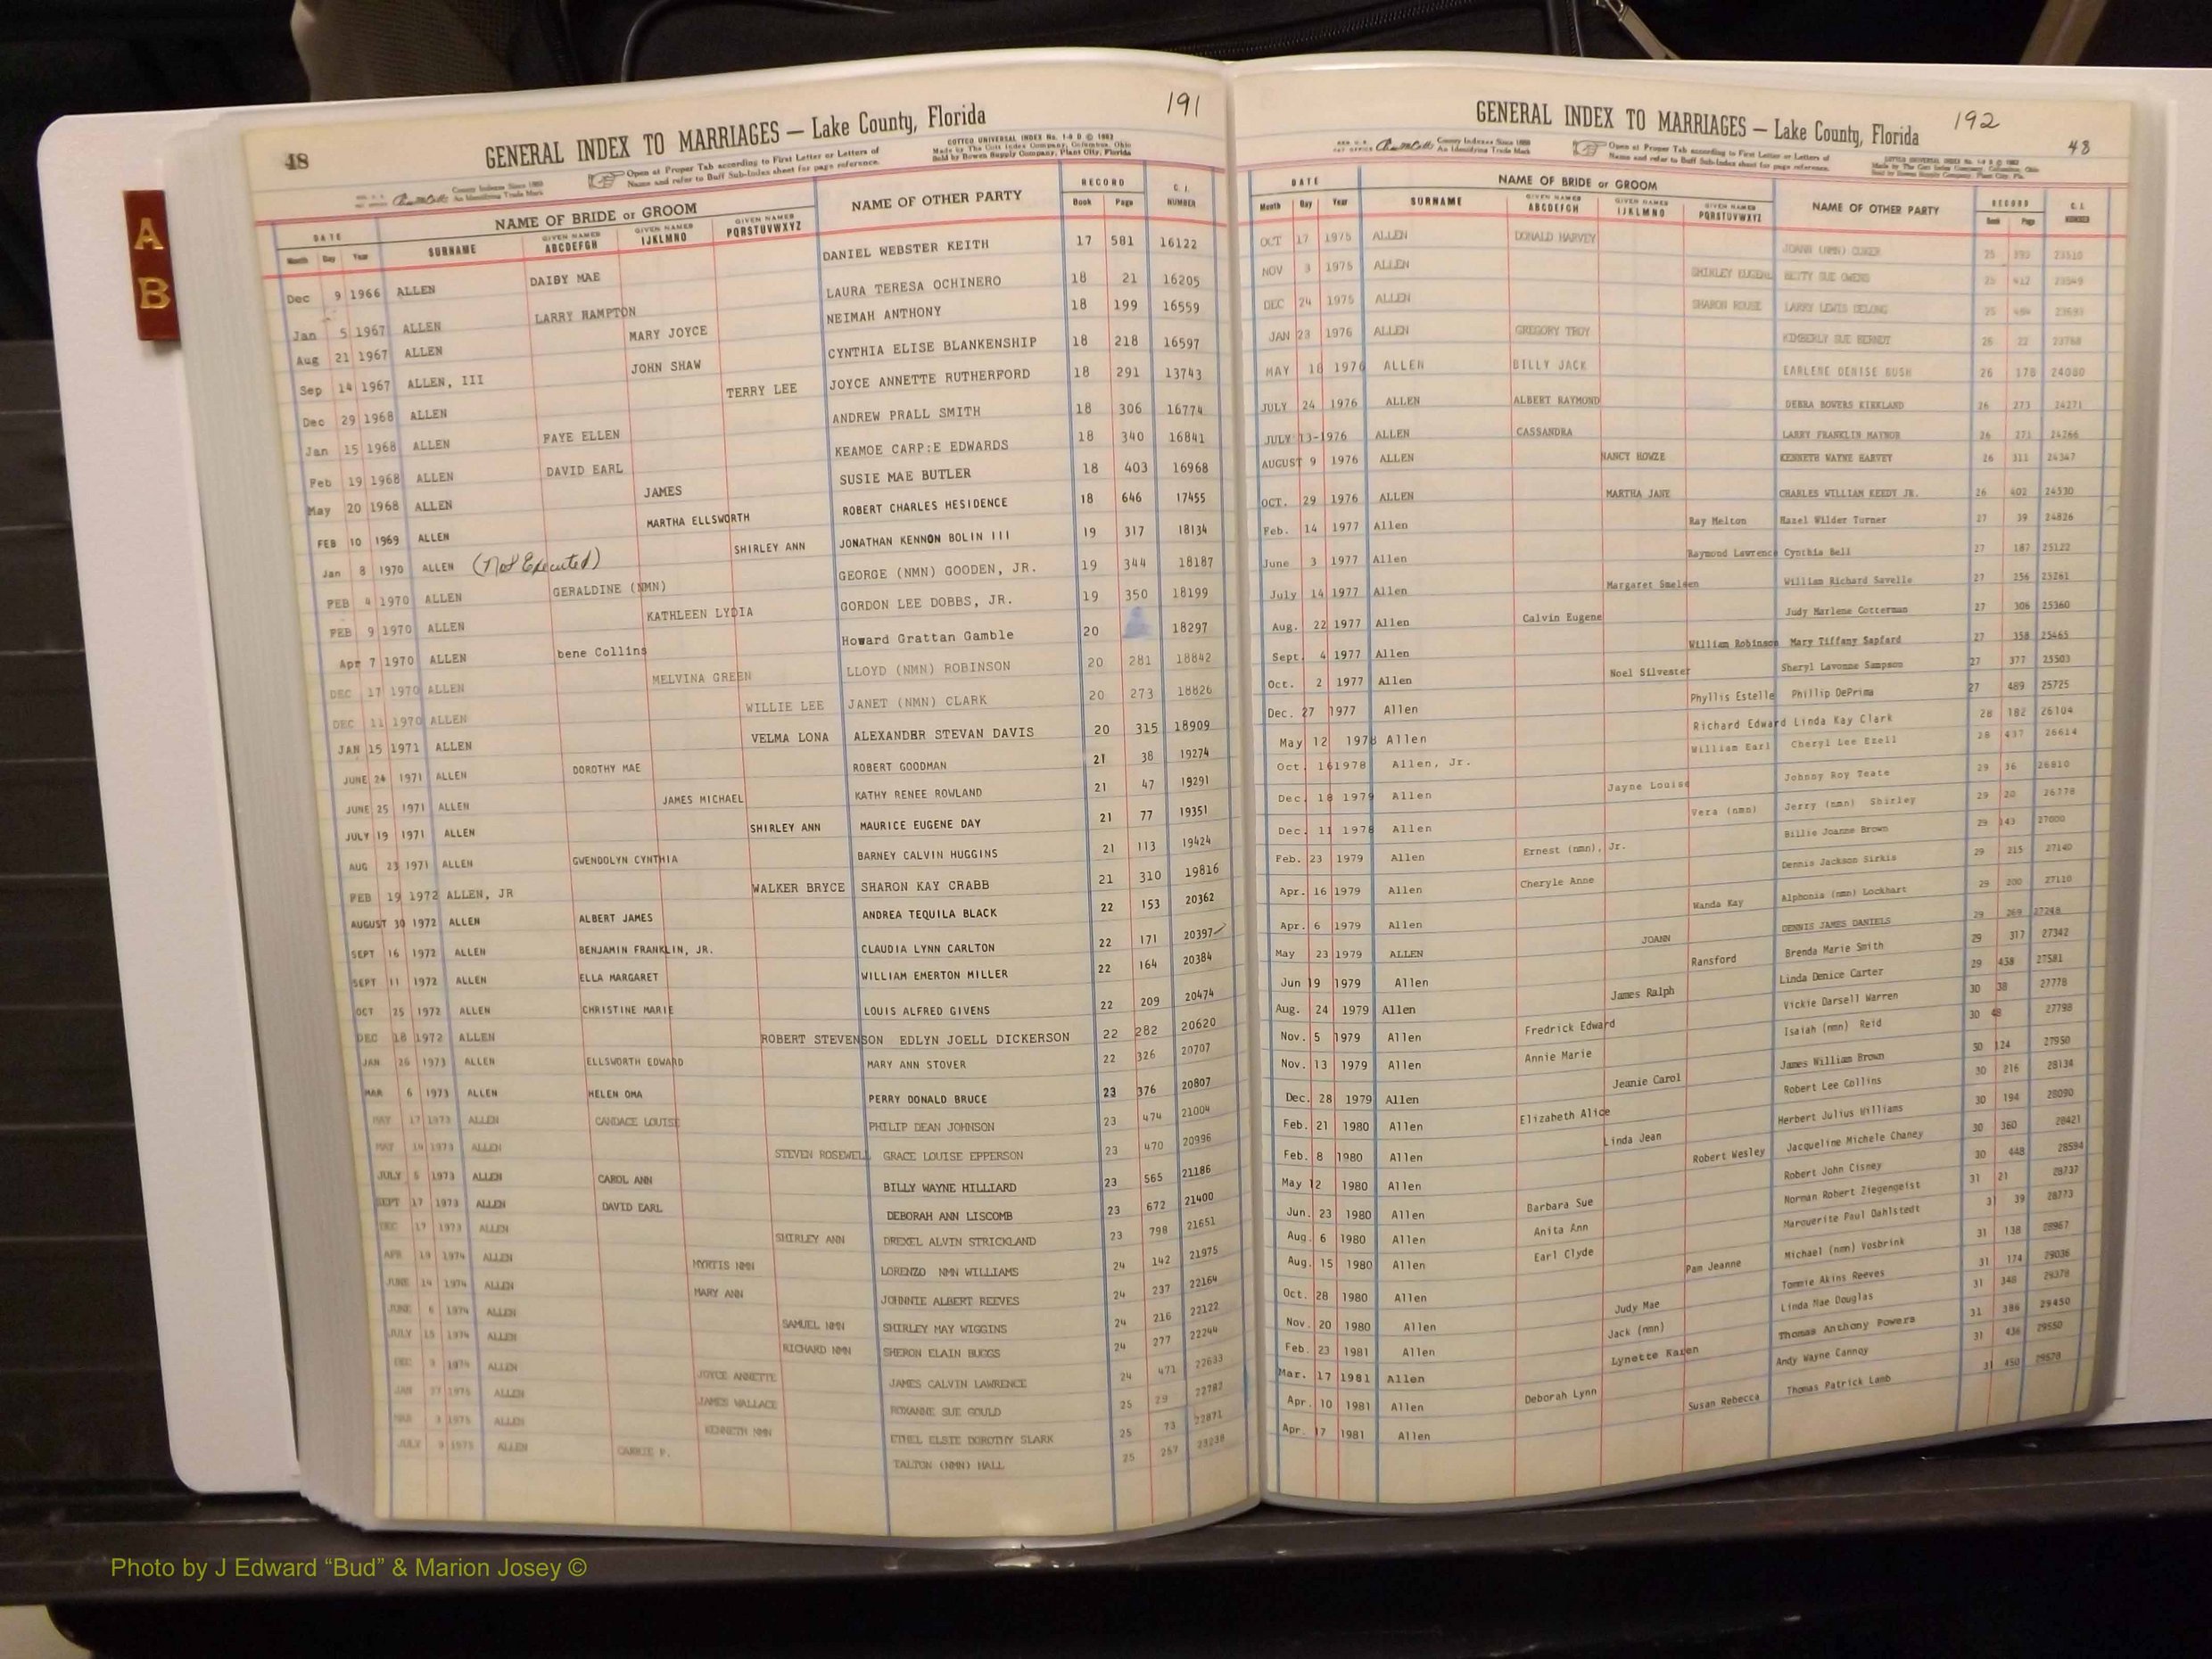 A
B
48
GENERAL INDEX TO MARRIAGES — Lake County, Florida
191
County Indexes Since 1888
An Identifying Trade Mark
Open at Proper Tab according to First Letter or Letters of
Name and refer to Buff Sub-Index sheet for page reference.
COTTCO UNIVERSAL INDEX No. 1-8 D © 1962
Made by The Cott Index Company, Columbus, Ohio
Sold by Bowen Supply Company, Plant City, Florida
DATE NAME OF BRIDE or GROOM NAME OF OTHER PARTY RECORD C. I. NUMBER
Month Day Year SURNAME GIVEN NAMES ABCDEFGH GIVEN NAMES IJKLMNO GIVEN NAMES PQRSTUVWXYZ Book Page
Dec 9 1966 ALLEN DAISY MAE DANIEL WEBSTER KEITH 17 581 16122
Jan 5 1967 ALLEN LARRY HAMPTON LAURA TERESA OCHINERO 18 21 16205
Aug 21 1967 ALLEN MARY JOYCE NEIMAH ANTHONY 18 199 16559
Sep 14 1967 ALLEN, III JOHN SHAW CYNTHIA ELISE BLANKENSHIP 18 218 16597
Dec 29 1968 ALLEN TERRY LEE JOYCE ANNETTE RUTHERFORD 18 291 13743
Jan 15 1968 ALLEN FAYE ELLEN ANDREW PRALL SMITH 18 306 16774
Feb 19 1968 ALLEN DAVID EARL KEAMOE CARP:E EDWARDS 18 340 16841
May 20 1968 ALLEN JAMES SUSIE MAE BUTLER 18 403 16968
FEB 10 1969 ALLEN MARTHA ELLSWORTH ROBERT CHARLES HESIDENCE 18 646 17455
Jan 8 1970 ALLEN (Not Executed) SHIRLEY ANN JONATHAN KENNON BOLIN III 19 317 18134
FEB 4 1970 ALLEN GERALDINE (NMN) GEORGE (NMN) GOODEN, JR. 19 344 18187
FEB 9 1970 ALLEN KATHLEEN LYDIA GORDON LEE DOBBS, JR. 19 350 18199
Apr 7 1970 ALLEN bene Collins Howard Grattan Gamble 20 18297
DEC 17 1970 ALLEN MELVINA GREEN LLOYD (NMN) ROBINSON 20 281 18842
DEC 11 1970 ALLEN WILLIE LEE JANET (NMN) CLARK 20 273 18826
JAN 15 1971 ALLEN VELMA LONA ALEXANDER STEVAN DAVIS 20 315 18909
JUNE 24 1971 ALLEN DOROTHY MAE ROBERT GOODMAN 21 38 19274
JUNE 25 1971 ALLEN JAMES MICHAEL KATHY RENEE ROWLAND 21 47 19291
JULY 19 1971 ALLEN SHIRLEY ANN MAURICE EUGENE DAY 21 77 19351
AUG 23 1971 ALLEN GWENDOLYN CYNTHIA BARNEY CALVIN HUGGINS 21 113 19424
FEB 19 1972 ALLEN, JR WALKER BRYCE SHARON KAY CRABB 21 310 19816
AUGUST 30 1972 ALLEN ALBERT JAMES ANDREA TEQUILA BLACK 22 153 20362
SEPT 16 1972 ALLEN BENJAMIN FRANKLIN, JR. CLAUDIA LYNN CARLTON 22 171 20397
SEPT 11 1972 ALLEN ELLA MARGARET WILLIAM EMERTON MILLER 22 164 20384
OCT 25 1972 ALLEN CHRISTINE MARIE LOUIS ALFRED GIVENS 22 209 20474
DEC 18 1972 ALLEN ROBERT STEVENSON EDLYN JOELL DICKERSON 22 282 20620
JAN 26 1973 ALLEN ELLSWORTH EDWARD MARY ANN STOVER 22 326 20707
MAR 6 1973 ALLEN HELEN OMA PERRY DONALD BRUCE 23 376 20807
MAY 17 1973 ALLEN CANDACE LOUISE PHILIP DEAN JOHNSON 23 474 21004
MAY 14 1973 ALLEN STEVEN ROSEWELL GRACE LOUISE EPPERSON 23 470 20996
JULY 5 1973 ALLEN CAROL ANN BILLY WAYNE HILLIARD 23 565 21186
SEPT 17 1973 ALLEN DAVID EARL DEBORAH ANN LISCOMB 23 672 21400
DEC 17 1973 ALLEN SHIRLEY ANN DREXEL ALVIN STRICKLAND 23 798 21651
APR 19 1974 ALLEN MYRTIS NMN LORENZO NMN WILLIAMS 24 142 21975
JUNE 14 1974 ALLEN MARY ANN JOHNNIE ALBERT REEVES 24 237 22164
JUNE 6 1974 ALLEN SAMUEL NMN SHIRLEY MAY WIGGINS 24 216 22122
JULY 15 1974 ALLEN RICHARD NMN SHERON ELAIN BUGGS 24 277 22244
DEC 3 1974 ALLEN JOYCE ANNETTE JAMES CALVIN LAWRENCE 24 471 22633
JAN 27 1975 ALLEN JAMES WALLACE ROXANNE SUE GOULD 25 29 22782
MAR 3 1975 ALLEN KENNETH NMN ETHEL ELSIE DOROTHY SLARK 25 73 22871
JULY 9 1975 ALLEN CARRIE P. TALTON (NMN) HALL 25 257 23238
GENERAL INDEX TO MARRIAGES — Lake County, Florida
192
48
County Indexes Since 1888
An Identifying Trade Mark
Open at Proper Tab according to First Letter or Letters of
Name and refer to Buff Sub-Index sheet for page reference.
COTTCO UNIVERSAL INDEX No. 1-8 D © 1962
Made by The Cott Index Company, Columbus, Ohio
Sold by Bowen Supply Company, Plant City, Fla.
DATE NAME OF BRIDE or GROOM NAME OF OTHER PARTY RECORD C. I. NUMBER
Month Day Year SURNAME GIVEN NAMES ABCDEFGH GIVEN NAMES IJKLMNO GIVEN NAMES PQRSTUVWXYZ Book Page
OCT 17 1975 ALLEN DONALD HARVEY JOANN (NMN) CUKER 25 393 23510
NOV 3 1975 ALLEN SHIRLEY EUGENE BETTY SUE OWENS 25 412 23549
DEC 24 1975 ALLEN SHARON ROUSE LARRY LEWIS DELONG 25 484 23693
JAN 23 1976 ALLEN GREGORY TROY KIMBERLY SUE BERNDT 26 22 23768
MAY 18 1976 ALLEN BILLY JACK EARLENE DENISE BUSH 26 178 24080
JULY 24 1976 ALLEN ALBERT RAYMOND DEBRA BOWERS KIRKLAND 26 273 24271
JULY 13-1976 ALLEN CASSANDRA LARRY FRANKLIN MAYNOR 26 271 24266
AUGUST 9 1976 ALLEN NANCY HOWZE KENNETH WAYNE HARVEY 26 311 24347
OCT. 29 1976 ALLEN MARTHA JANE CHARLES WILLIAM KEEDY JR. 26 402 24530
Feb. 14 1977 Allen Ray Melton Hazel Wilder Turner 27 39 24826
June 3 1977 Allen Raymond Lawrence Cynthia Bell 27 187 25122
July 14 1977 Allen Margaret Smelsen William Richard Savelle 27 256 25261
Aug. 22 1977 Allen Calvin Eugene Judy Marlene Cotterman 27 306 25360
Sept. 4 1977 Allen William Robinson Mary Tiffany Sapfard 27 358 25465
Oct. 2 1977 Allen Noel Silvester Sheryl Lavonne Sampson 27 377 25503
Dec. 27 1977 Allen Phyllis Estelle Phillip DePrima 27 489 25725
May 12 1978 Allen Richard Edward Linda Kay Clark 28 182 26104
Oct. 16 1978 Allen, Jr. William Earl Cheryl Lee Ezell 28 437 26614
Dec. 18 1979 Allen Jayne Louise Johnny Roy Teate 29 36 26810
Dec. 11 1978 Allen Vera (nmn) Jerry (nmn) Shirley 29 20 26778
Feb. 23 1979 Allen Ernest (nmn), Jr. Billie Joanne Brown 29 143 27000
Apr. 16 1979 Allen Cheryle Anne Dennis Jackson Sirkis 29 215 27140
Apr. 6 1979 Allen Wanda Kay Alphonis (nmn) Lockhart 29 200 27110
May 23 1979 ALLEN JOANN DENNIS JAMES DANIELS 29 269 27248
Jun 19 1979 Allen Ransford Brenda Marie Smith 29 317 27342
Aug. 24 1979 Allen James Ralph Linda Denice Carter 29 438 27581
Nov. 5 1979 Allen Fredrick Edward Vickie Darsell Warren 30 38 27778
Nov. 13 1979 Allen Annie Marie Isaiah (nmn) Reid 30 48 27798
Dec. 28 1979 Allen Jeanie Carol James William Brown 30 124 27950
Feb. 21 1980 Allen Elizabeth Alice Robert Lee Collins 30 216 28134
Feb. 8 1980 Allen Linda Jean Herbert Julius Williams 30 194 28090
May 12 1980 Allen Robert Wesley Jacqueline Michele Chaney 30 360 28421
Jun. 23 1980 Allen Barbara Sue Robert John Cisney 30 448 28594
Aug. 6 1980 Allen Anita Ann Norman Robert Ziegengeist 31 21 28737
Aug. 15 1980 Allen Earl Clyde Marguerite Paul Dahlstedt 31 39 28773
Oct. 28 1980 Allen Pam Jeanne Michael (nmn) Vosbrink 31 138 28967
Nov. 20 1980 Allen Judy Mae Tommie Akins Reeves 31 174 29036
Feb. 23 1981 Allen Jack (nmn) Linda Mae Douglas 31 348 29378
Mar. 17 1981 Allen Lynette Karen Thomas Anthony Powers 31 386 29450
Apr. 10 1981 Allen Deborah Lynn Andy Wayne Cannoy 31 436 29550
Apr. 17 1981 Allen Susan Rebecca Thomas Patrick Lamb 31 450 29578
Photo by J Edward “Bud” & Marion Josey ©